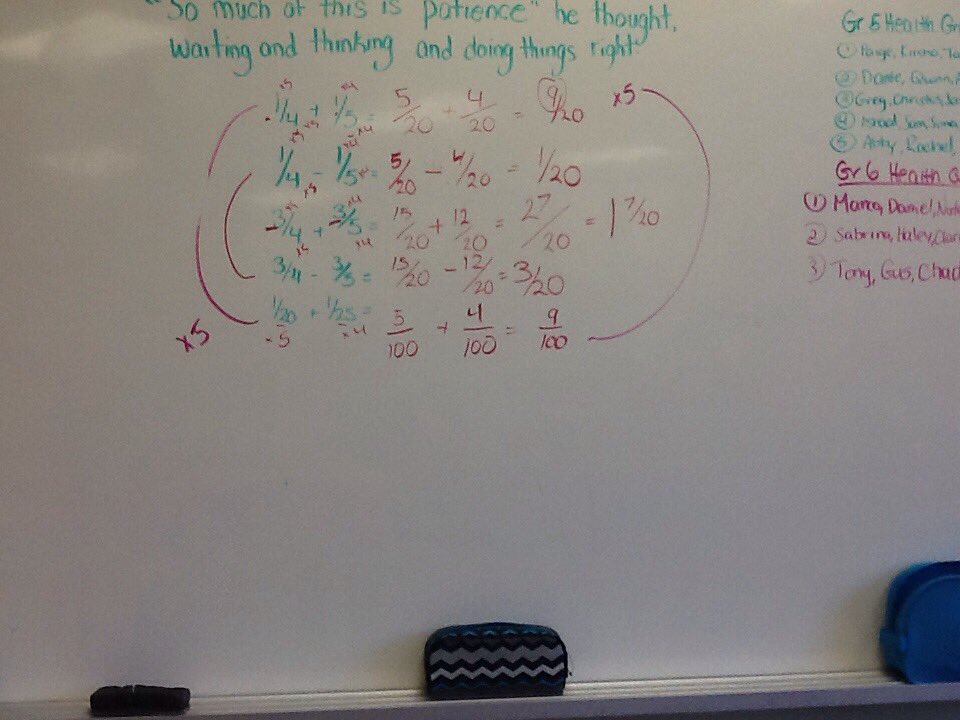 "So much of this is patience" he thought,
waiting and thinking and doing things right"
1/4 + 1/5 = 5/20 + 4/20 = 9/20 x5
1/4 - 1/5 = 5/20 - 4/20 = 1/20
3/4 + 3/5 = 15/20 + 12/20 = 27/20 = 1 7/20
3/4 - 3/5 = 15/20 - 12/20 = 3/20
1/20 + 1/25 = 5/100 + 4/100 = 9/100
x5
Gr 5 Health Gr
① Paige, Emma,
② Dante, Quinn,
③ Greg,
④
⑤ Abby, Rachel,
Gr 6 Health
① Marco, Daniel,
② Sabrina, Haley,
3) Tony, Gus, Chad